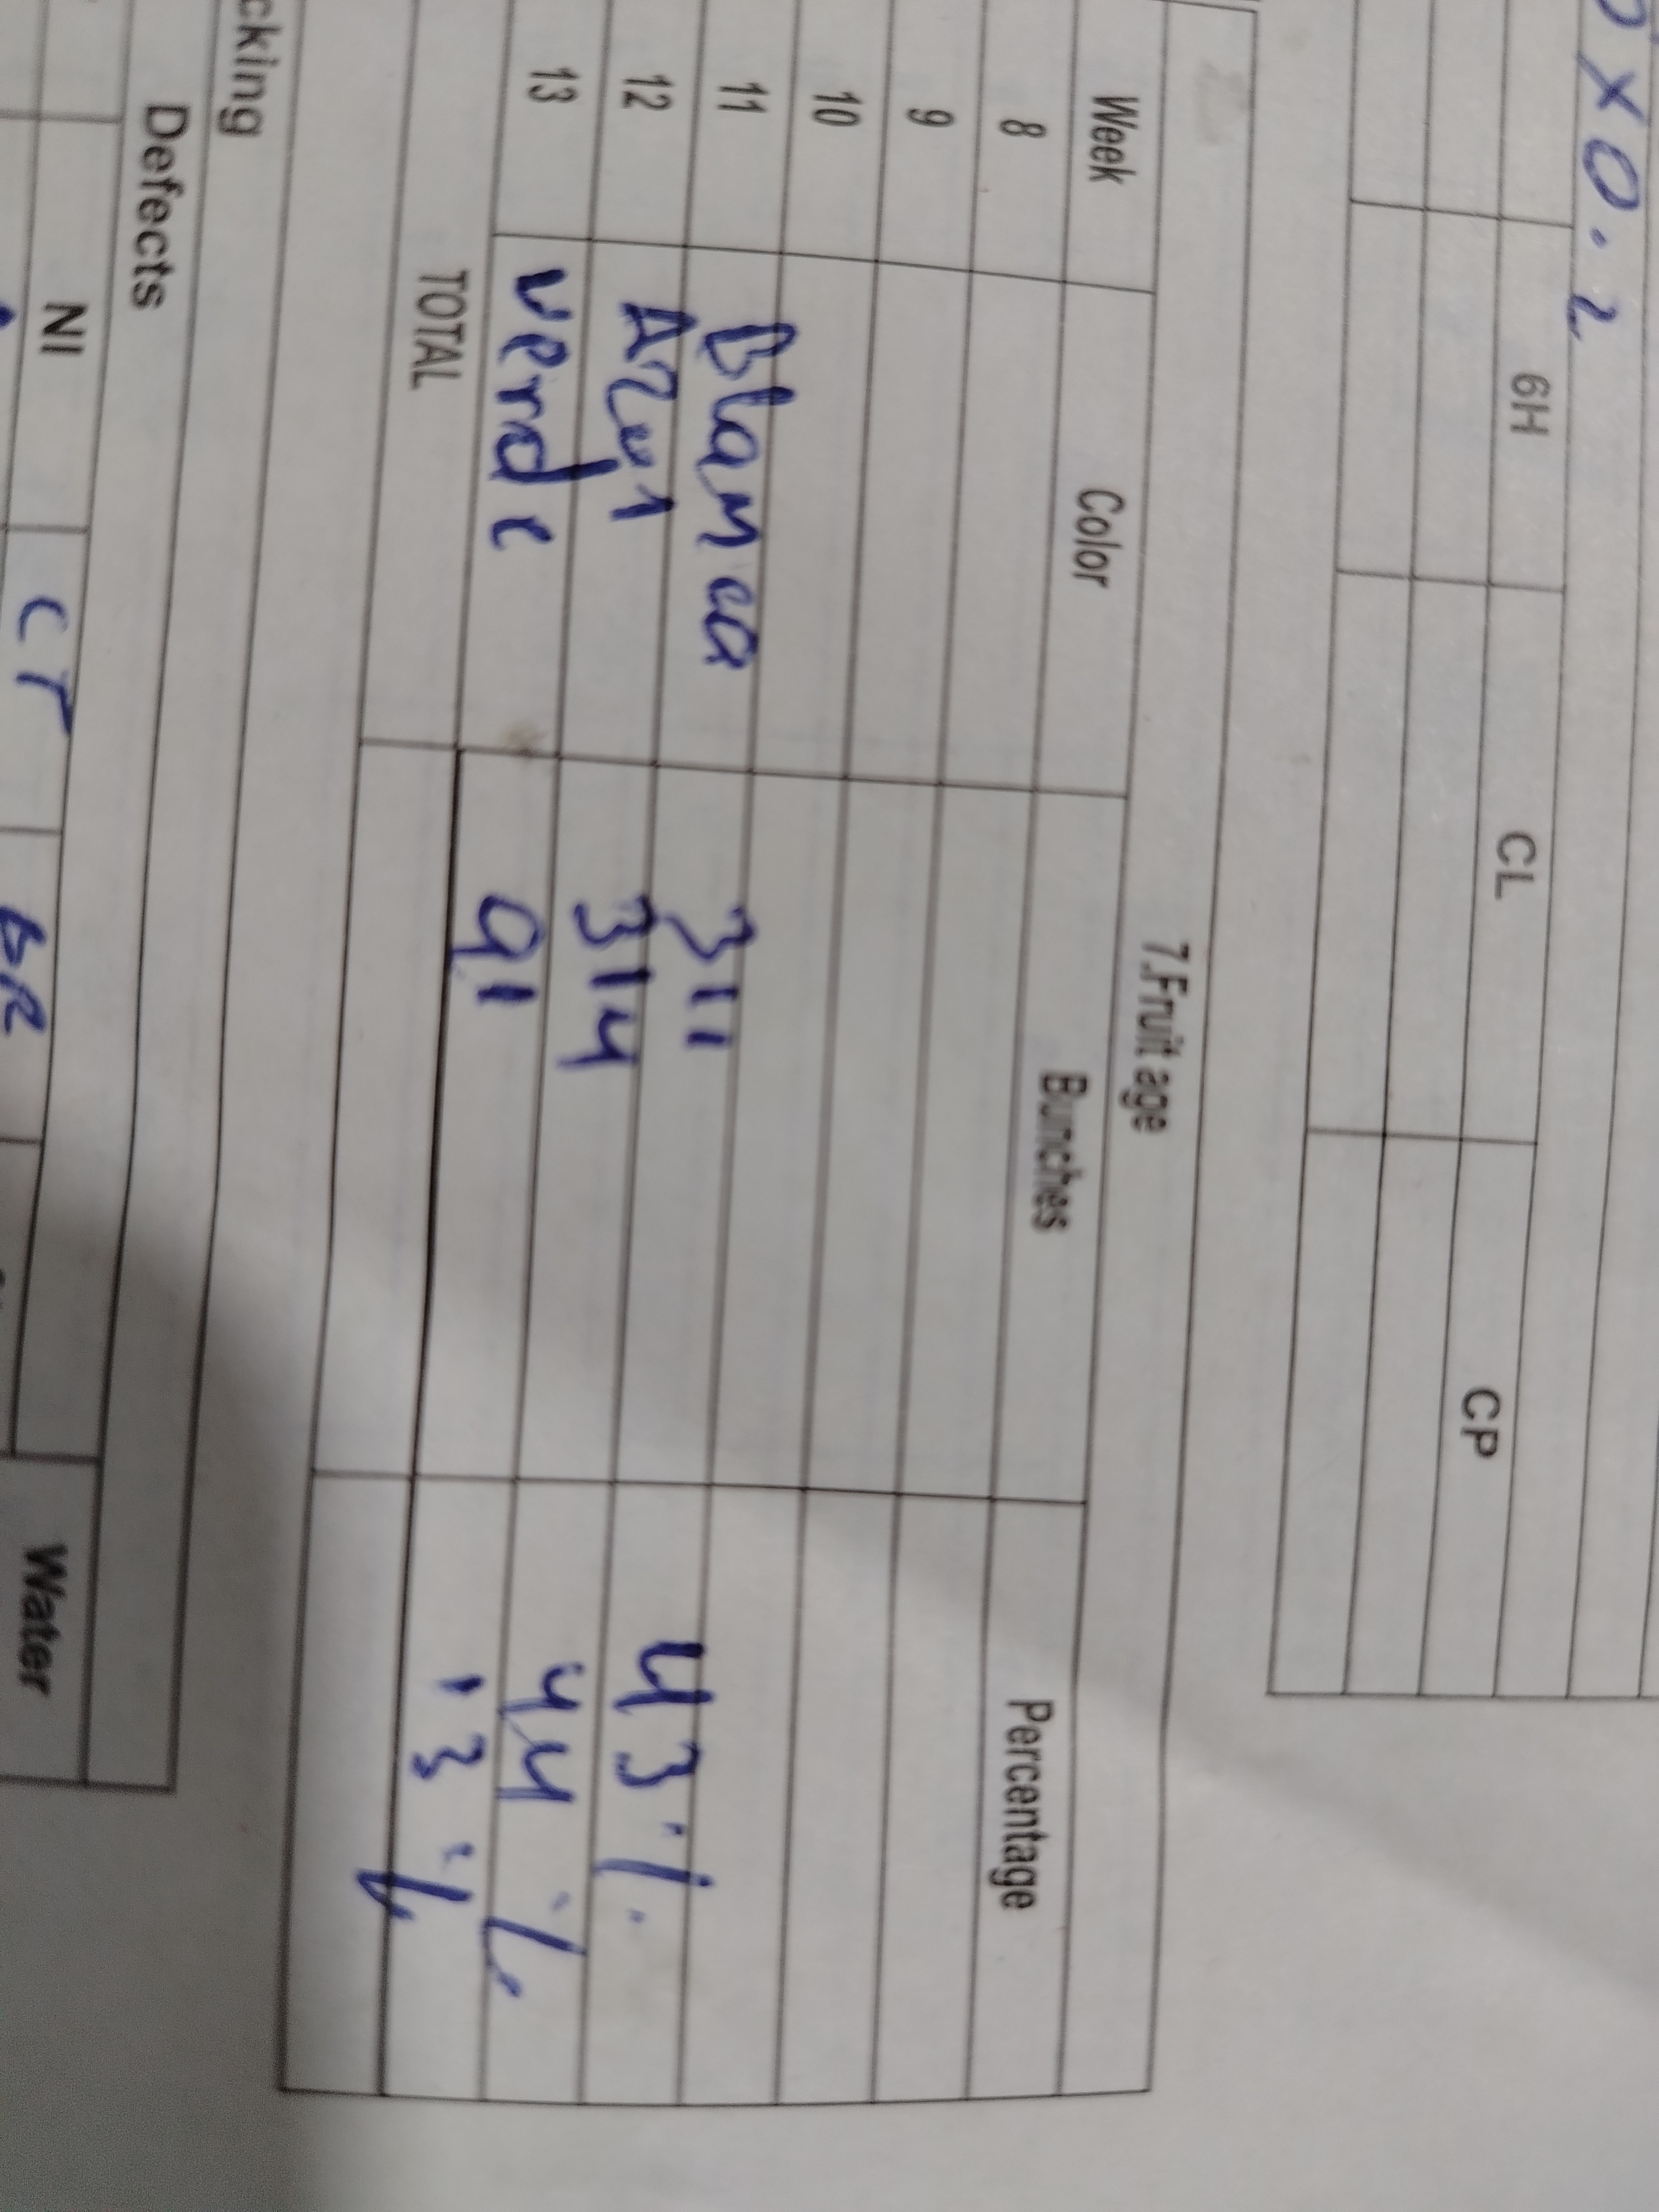 0 X 0.2
6H CL CP
7.Fruit age
Week Color Bunches Percentage
8
9
10
11 Blamca 311 43%
12 Azul 314 44%
13 verde 91 13%
TOTAL
cking
Defects
NI Water
CT BR